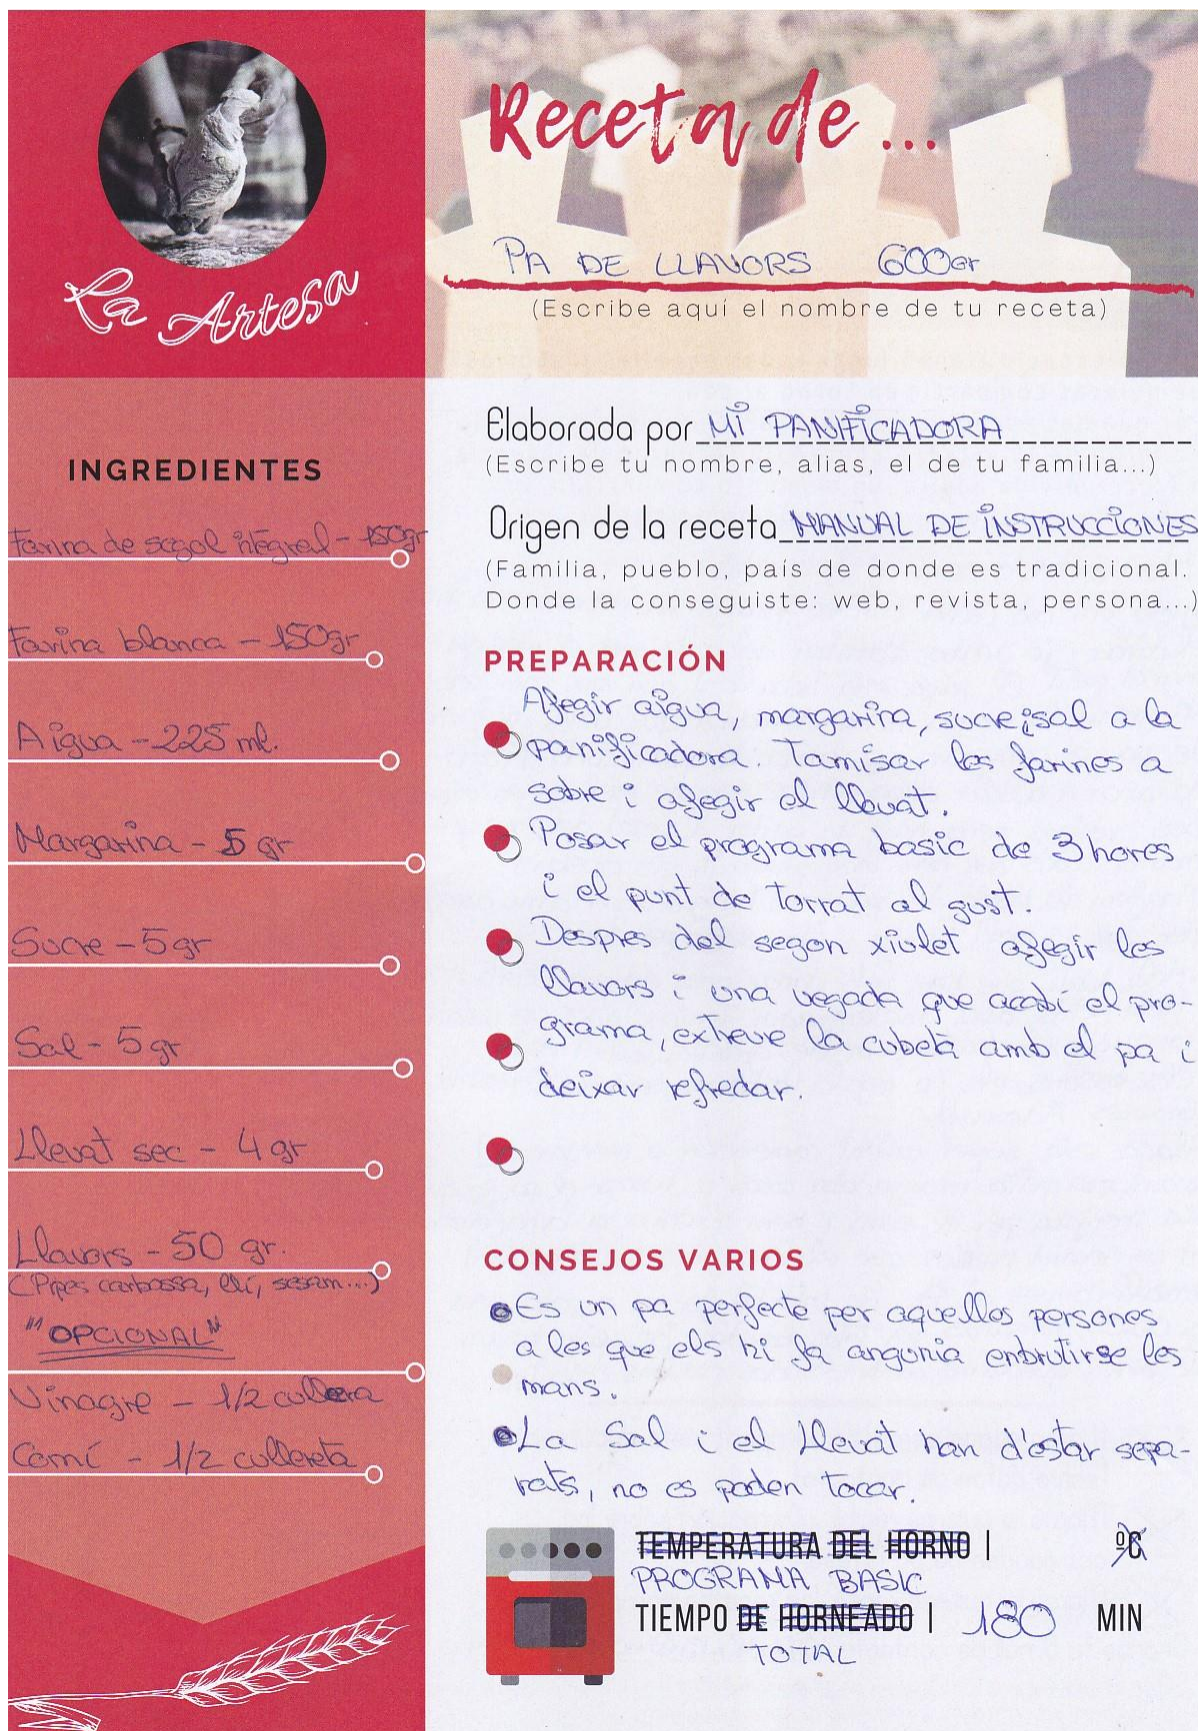 La Artesa
Receta de ...
PA DE LLAVORS 600Gr
(Escribe aquí el nombre de tu receta)
INGREDIENTES
Farina de segol integral - 150gr
Farina blanca - 150gr
Aigua - 225 ml.
Margarina - 5 gr
Sucre - 5 gr
Sal - 5 gr
Llevat sec - 4 gr
Llavors - 50 gr.
(Pipes carbassa, llí, sesam...)
"OPCIONAL"
Vinagre - 1/2 cullera
Comí - 1/2 cullereta
Elaborada por MI PANIFICADORA
(Escribe tu nombre, alias, el de tu familia...)
Origen de la receta MANUAL DE INSTRUCCIONES
(Familia, pueblo, país de donde es tradicional.
Donde la conseguiste: web, revista, persona...)
PREPARACIÓN
Afegir aigua, margarina, sucre i sal a la
panificadora. Tamisar les farines a
sobre i afegir el llevat.
Posar el programa basic de 3 hores
i el punt de torrat al gust.
Despres del segon xiulet afegir les
llavors i una vegada que acabi el pro-
grama, extreure la cubeta amb el pa i
deixar refredar.
CONSEJOS VARIOS
Es un pa perfecte per aquelles persones
a les que els hi fa angunia enbrutirse les
mans.
La Sal i el Llevat han d'estar sepa-
rats, no es poden tocar.
TEMPERATURA DEL HORNO | ºC
PROGRAMA BASIC
TIEMPO DE HORNEADO | 180 MIN
TOTAL